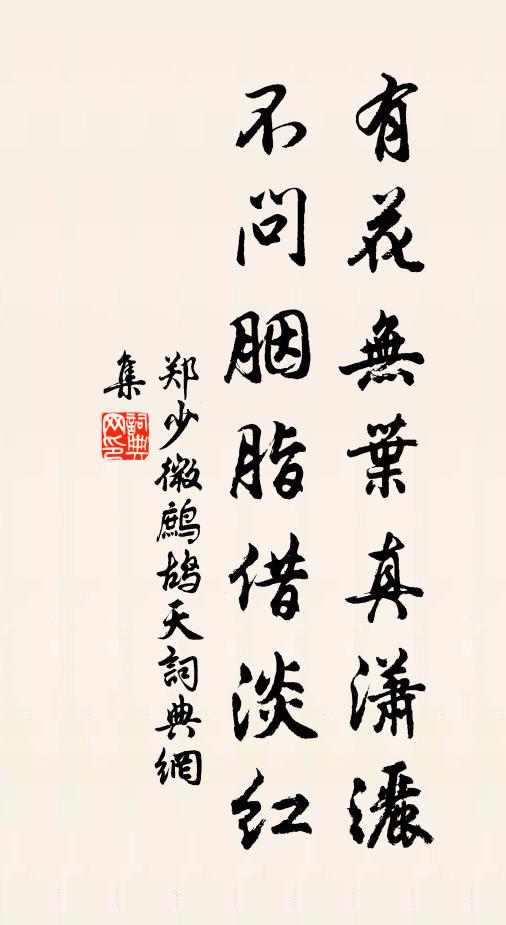 有花無葉真瀟灑
不問胭脂借淡紅
郑少微鷓鴣天詞典網
集
詞典
网印